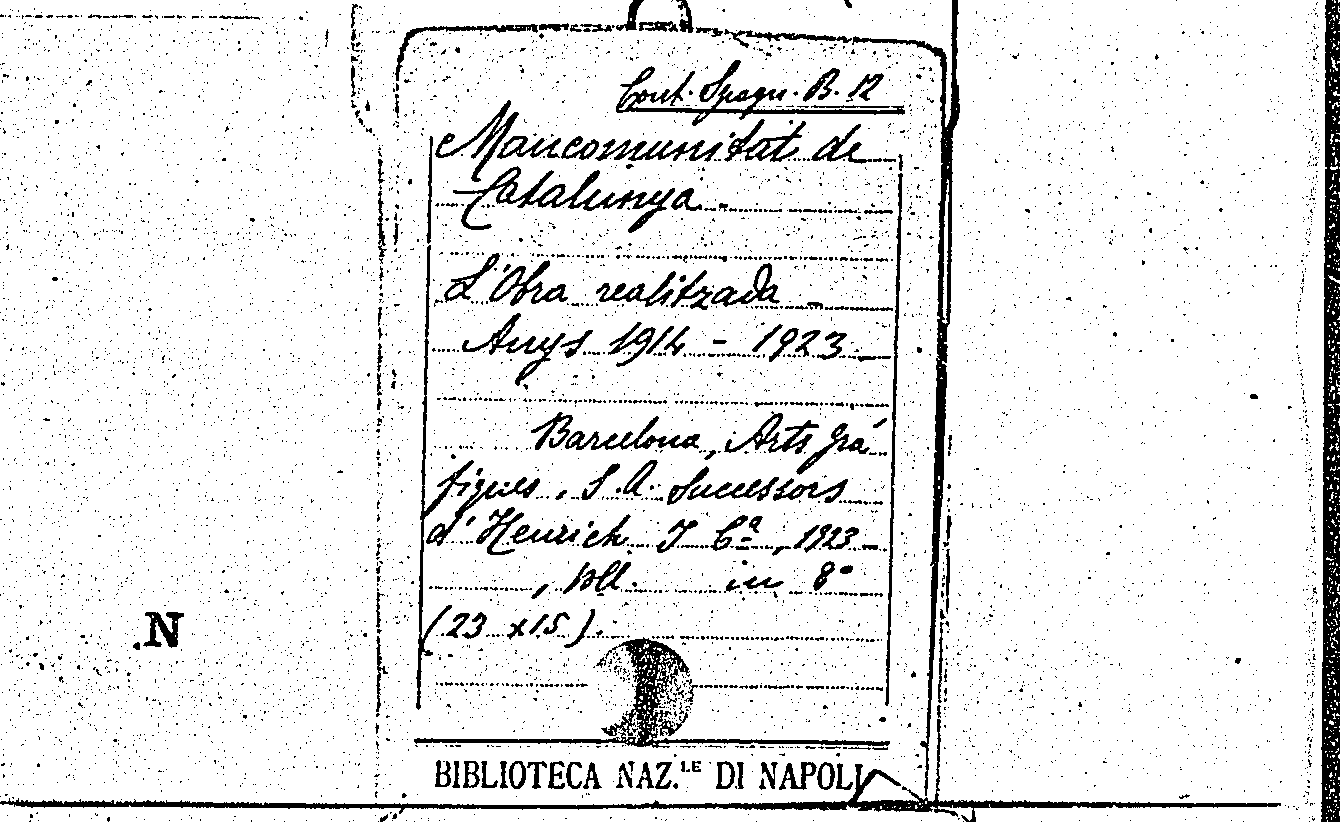 Cont. Spagn. B. 12
Mancomunitat de
Catalunya.
L'Obra realitzada -
Anys 1914 - 1923 -
Barcelona, Arts grá
fiques, S.A. Successors
d'Henrich I Cª, 1923 -
, pll. in 8°
(23 x 15).
N
BIBLIOTECA NAZ.LE DI NAPOLI